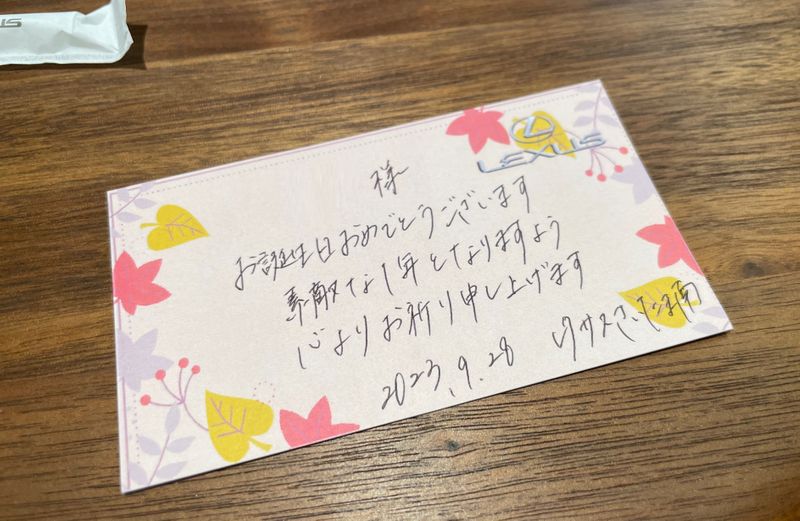 LEXUS
様
お誕生日おめでとうございます
素敵な1年となりますよう
心よりお祈り申し上げます
2023.9.28 レクサスさいたま南